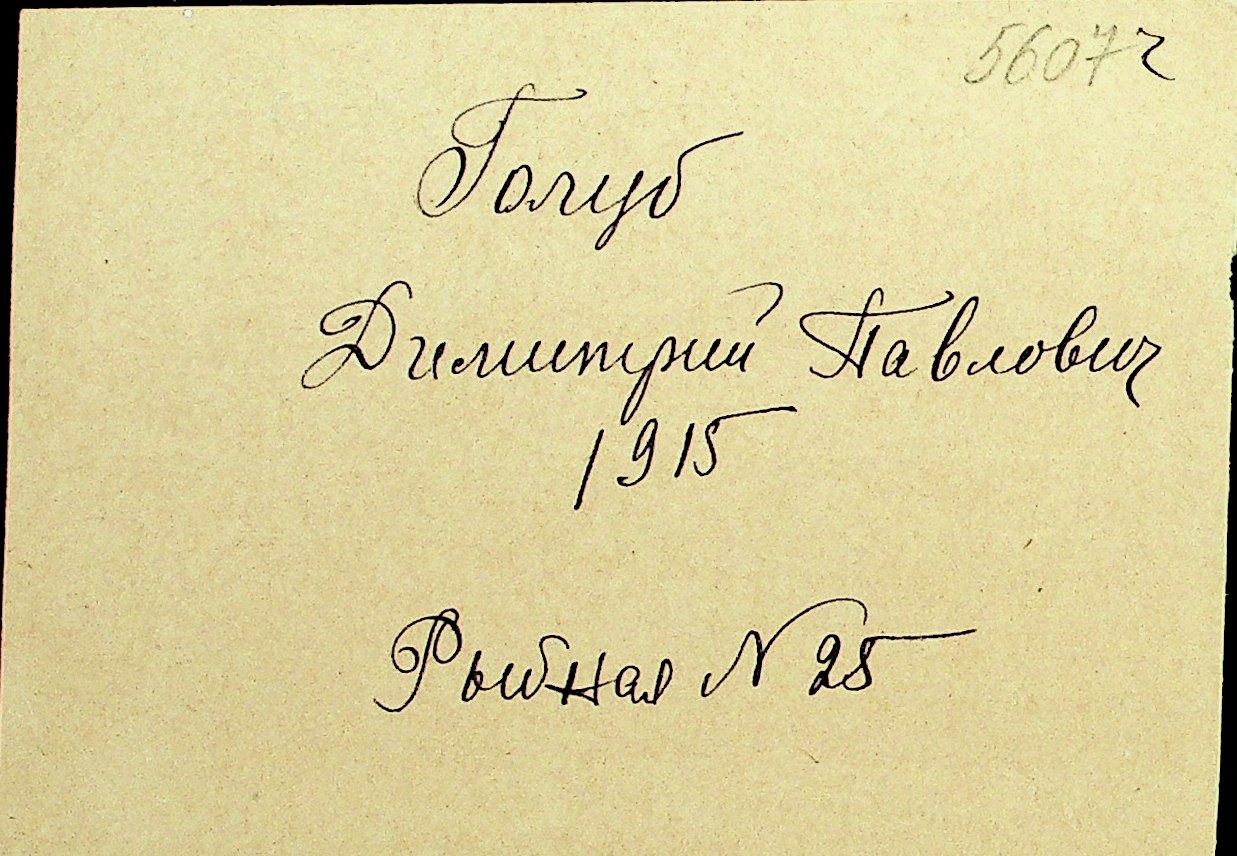 5607 ч
Голуб
Димитрий Павлович
1915
Рыбная N 25